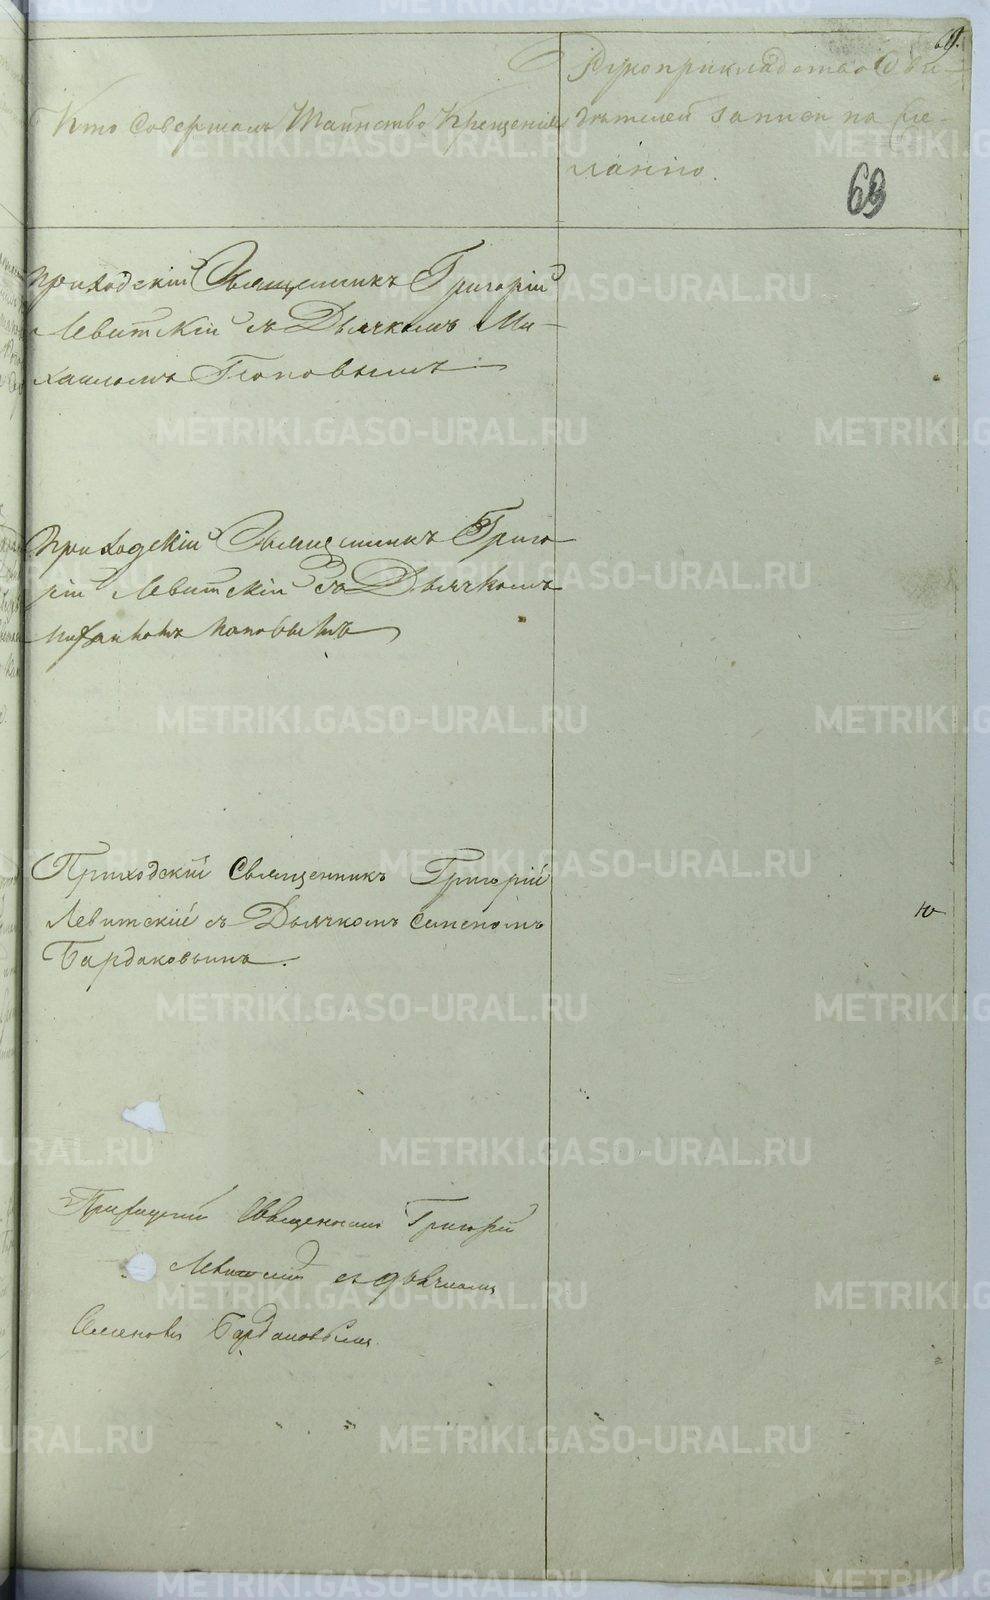 69.
Кто совершалъ Таинство Крещенія
Рукоприкладство сви-
дѣтелей записи по же-
ланію.
69
Приходскій Священникъ Григорій
Левитскій съ Дьячкомъ Ми-
хаиломъ Поповымъ
Приходскій Священникъ Григо
рій Левитскій съ Дьячкомъ
Поповымъ
Приходскій Священникъ Григорій
Левитскій съ Дьячкомъ Симеономъ
Бардаковымъ.
ю
Приходскій Священникъ Григорій
Левитскій съ дьячкомъ
Семеномъ Бардаковымъ
METRIKI.GASO-URAL.RU